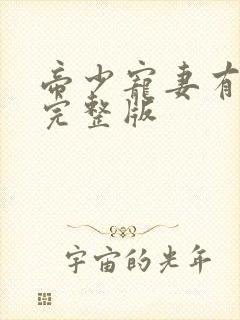 帝少寵妻有
完整版
宇宙的光年